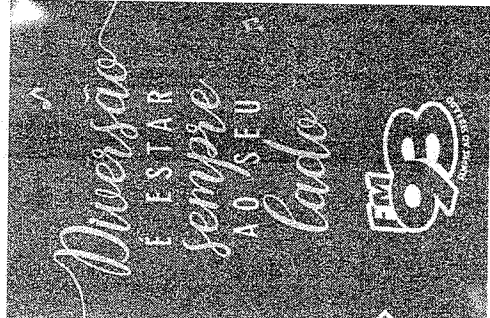 Diversão
É ESTAR
sempre
AO SEU
lado
FM
93